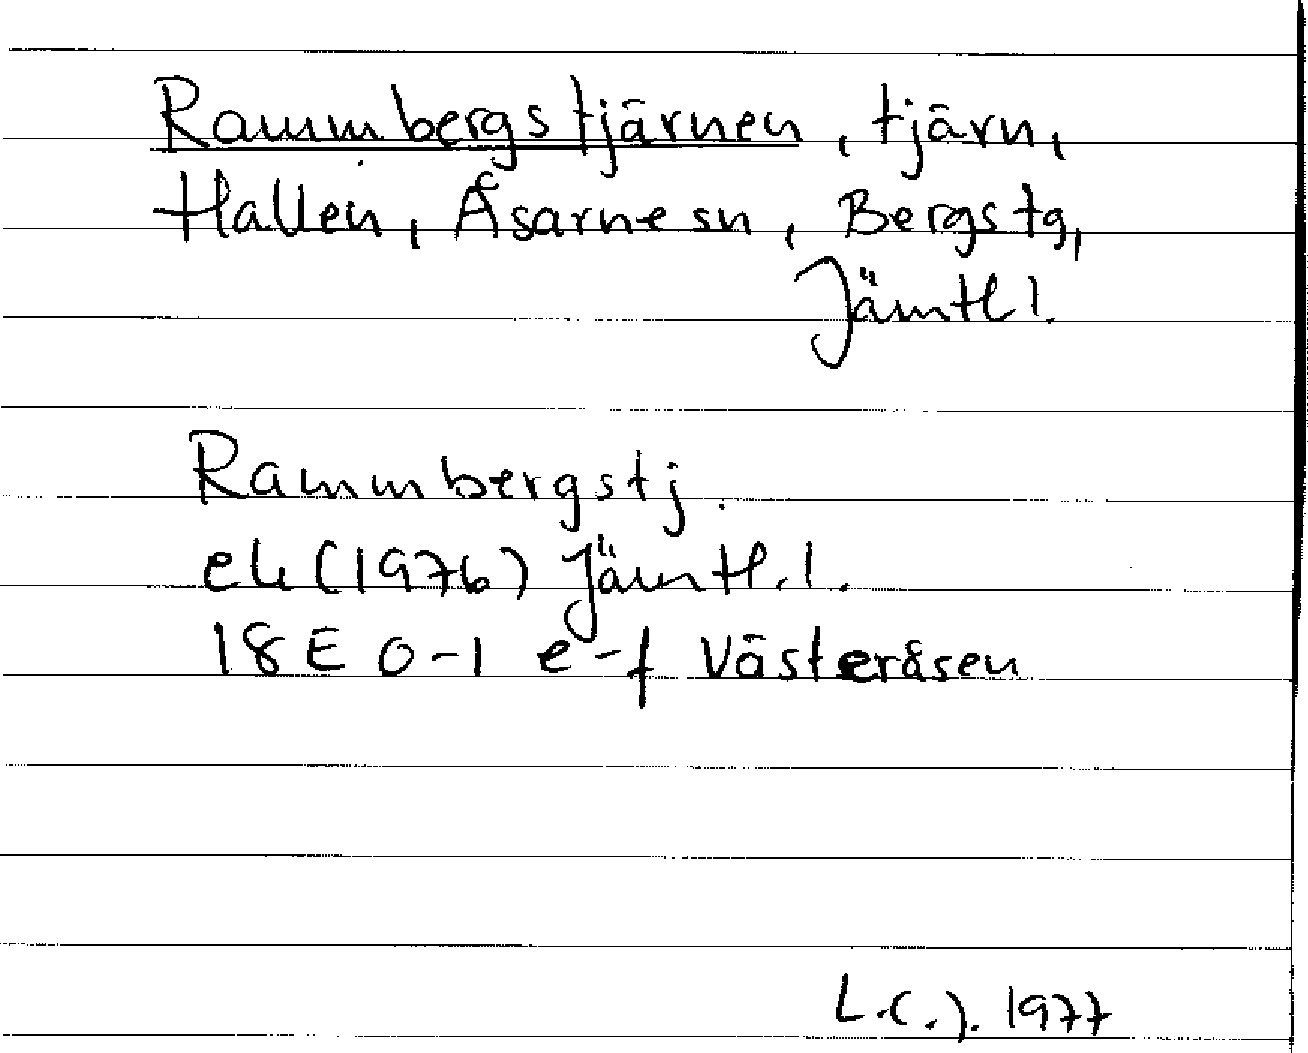 Rammbergstjärnen, tjärn,
Hallen, Åsarne sn, Bergs tg,
Jämtl l.
Rammbergstj.
ek (1976) Jämtl. l.
18E 0-1 e-f Västeråsen
L.C.J. 1977